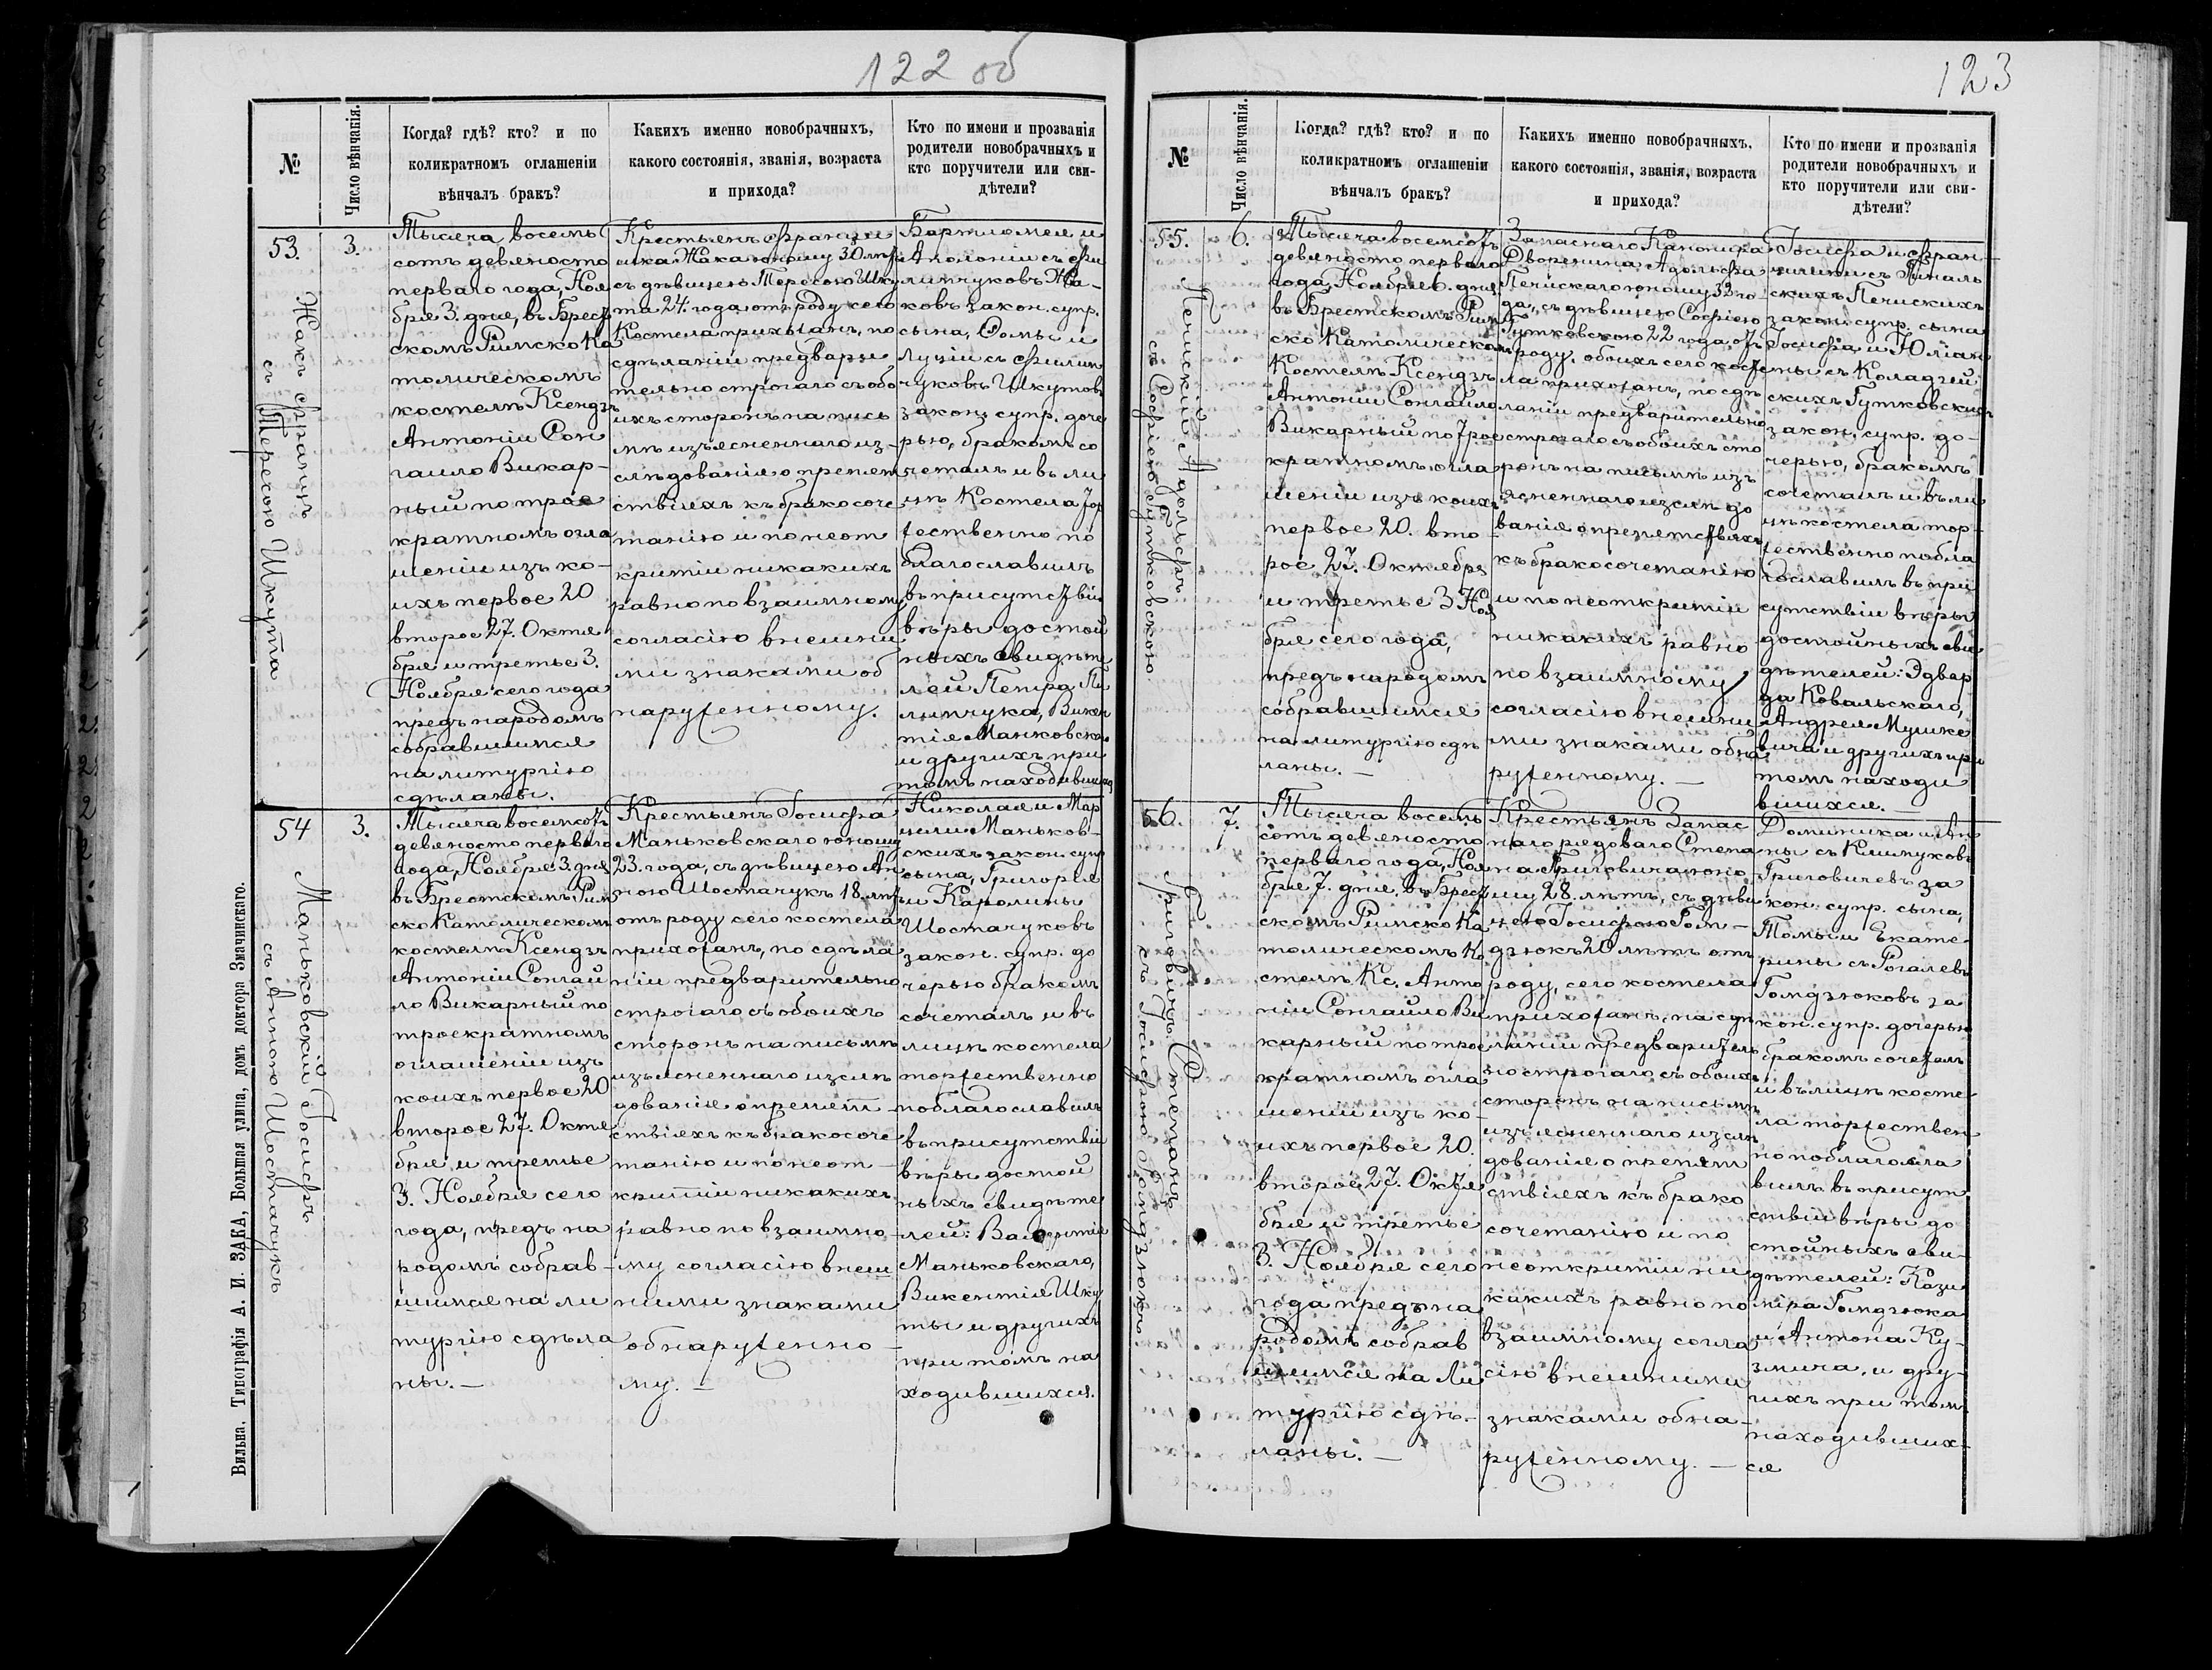 122 об
№
Число вѣнчанія.
Когда? гдѣ? кто? и по
коликратномъ оглашеніи
вѣнчалъ бракъ?
Какихъ именно новобрачныхъ,
какого состоянія, званія, возраста
и прихода?
Кто по имени и прозванія
родители новобрачныхъ и
кто поручители или сви-
дѣтели?
53.
Жакъ Францъ
съ Тересою Шкутa
3.
Тысяча восемь
сотъ девяносто
перваго года, Ноя
бря 3. дня, въ Брест
скомъ Римско Ка
толическомъ
костелѣ Ксендзъ
Антоніи Сон
гаило Викар-
ный по трое
кратномъ огла
шеніи изъ ко-
ихъ первое 20
второе 27. Октя
бря и третье 3.
Ноября сего года
предъ народомъ
собравшимся
на литургію
сдѣланы.
Крестьянъ Франци
шка Жака юношу 30 лѣтъ
съ дѣвицею Тересою Шку
та 24. года отъ роду сего
Костела прихожанъ, по
сдѣланіи предвари
тельно строгаго съ обо
ихъ сторонъ на пись
мѣ изъясненнаго из-
слѣдованія о препят
ствіяхъ къ бракосоче
танію и по неот
крытіи никакихъ
равно по взаимному
согласію внешни
ми знаками об
наруженному.
Бартломея и
Аполоніи съ Фи
липчуковъ Жа-
ковъ закон. супр.
сына, Фомы и
Луціи съ Филип
чуковъ Шкутовъ
закон. супр. доче
рью, бракомъ со
четалъ и въ ли
цѣ Костела тор
жественно по
благославилъ
въ присутствіи
вѣры достой
ныхъ свидѣте
лей Петра Фи
липчука, Викен
тія Манковскаго
и другихъ при
томъ находившихся
54
Маньковскій Іосифъ
съ Анною Шостачукъ
3.
Тысяча восемсотъ
девяносто перваго
года, Ноября 3. дня
въ Брестскомъ Рим
ско Католическомъ
костелѣ Ксендзъ
Антоніи Сонгай
ло Викарный по
троекратномъ
оглашеніи изъ
коихъ первое 20
второе 27. Октя
бря и третье
3. Ноября сего
года, предъ на
родомъ собрав-
шимся на ли
тургію сдѣла
ны. —
Крестьянъ Іосифа
Маньковскаго юношу
23. года, съ дѣвицею Ан
ною Шостачукъ 18 лѣтъ
отъ роду сего костела
прихожанъ, по сдѣла
ніи предварительно
строгаго съ обоихъ
сторонъ на письмѣ
изъясненнаго изслѣ
дованія о препят-
ствіяхъ къ бракосоче
танію и по неот-
крытіи никакихъ
равно по взаимно-
му согласію внеш
ними знаками
обнаруженно-
му. —
Николая и Мар
цели Маньков-
скихъ закон. супр
сына, Григорія
и Каролины
Шостачуковъ
закон. супр. до
черью бракомъ
сочеталъ и въ
лицѣ костела
торжественно
поблагославилъ
въ присутствіи
вѣры достой
ныхъ свидѣте
Маньковскаго,
Викентія Шку
ты и другихъ
при томъ на
ходившихся.
Вильна. Типографія А. И. ЗАКА, Большая улица, домъ доктора Змачинскаго.
123
№
Число вѣнчанія.
Когда? гдѣ? кто? и по
коликратномъ оглашеніи
вѣнчалъ бракъ?
Какихъ именно новобрачныхъ,
какого состоянія, званія, возраста
и прихода?
Кто по имени и прозванія
родители новобрачныхъ и
кто поручители или сви-
дѣтели?
55.
Печискій Адольфъ
съ Софіею Гутковскою
6.
Тысяча восемсотъ
девяносто перваго
года, Ноября 6. дня
въ Брестскомъ Рим
ско Католическомъ
Костелѣ Ксендзъ
Антоніи Сонгайло
Викарный по трое
кратномъ огла
шеніи изъ коихъ
первое 20. вто-
рое 27. Октября
и третье 3 Ноя
бря сего года,
предъ народомъ
собравшимся
на литургію сдѣ
ланы. —
Запаснаго Канонира
Дворянина Адольфа
Печискаго юношу 33 го-
да, съ дѣвицею Софіею
Гутковскою 22 года отъ
роду, обоихъ сего косте
ла прихожанъ, по сдѣ
ланіи предварительно
строгаго съ обоихъ сто
ронъ на письмѣ изъ
ясненнаго изслѣдо
ванія о препятствіяхъ
къ бракосочетанію
и по неоткрытіи
никакихъ равно
по взаимному
согласію внешни
ми знаками обна
руженному. —
Іосифа и Фран-
цишки съ Пиналь
скихъ Печискихъ
закон. супр. сына
Іосифа и Юліан
ны съ Коладзей
скихъ Гутковскихъ
закон. супр. до-
черью, бракомъ
сочеталъ и въ ли
цѣ костела тор-
жественно побла
гославилъ въ при
сутствіи вѣры
достойныхъ сви
дѣтелей: Эдвар
да Ковальскаго,
Андрея Мушке
вича и другихъ при
томъ находи
вшихся. —
56.
Григовичъ Степанъ
съ Іосифою Гомдзюкъ
7.
Тысяча восемь
сотъ девяносто
перваго года, Ноя
бря 7. дня, въ Брест
скомъ Римско Ка
толическомъ Ко
стелѣ Кс. Анто
ніи Сонгайло Ви
карный по трое
кратномъ огла
шеніи изъ ко-
ихъ первое 20.
второе 27. Октя
бря и третье
3. Ноября сего
года предъ на
родомъ собрав
шимся на Ли
тургію сдѣ-
ланы. —
Крестьянъ Запас
наго рядоваго Степа
на Григовича юно
шу 28. лѣтъ, съ дѣви
цею Іосифою Гом-
дзюкъ 20 лѣтъ отъ
роду, сего костела
прихожанъ, на сдѣ
ланіи предваритель
но строгаго съ обоихъ
сторонъ на письмѣ
изъясненнаго изслѣ
дованія о препят
ствіяхъ къ брако
сочетанію и по
неоткрытіи ни
какихъ равно по
взаимному согла
сію внешними
знаками обна-
руженному. —
Доминика и Ан
ны съ Климуковъ
Григовичевъ за
кон. супр. сына,
Томы и Екате-
рины съ Рогалевъ
Гомдзюковъ за
кон. супр. дочерью
бракомъ сочеталъ
и въ лицѣ косте
ла торжествен
но поблагосла
вилъ въ присут
ствіи вѣры до
стойныхъ сви-
дѣтелей: Кази
міра Гомдзюка
и Антона Ку-
змича, и дру-
гихъ при томъ
находивших-
ся